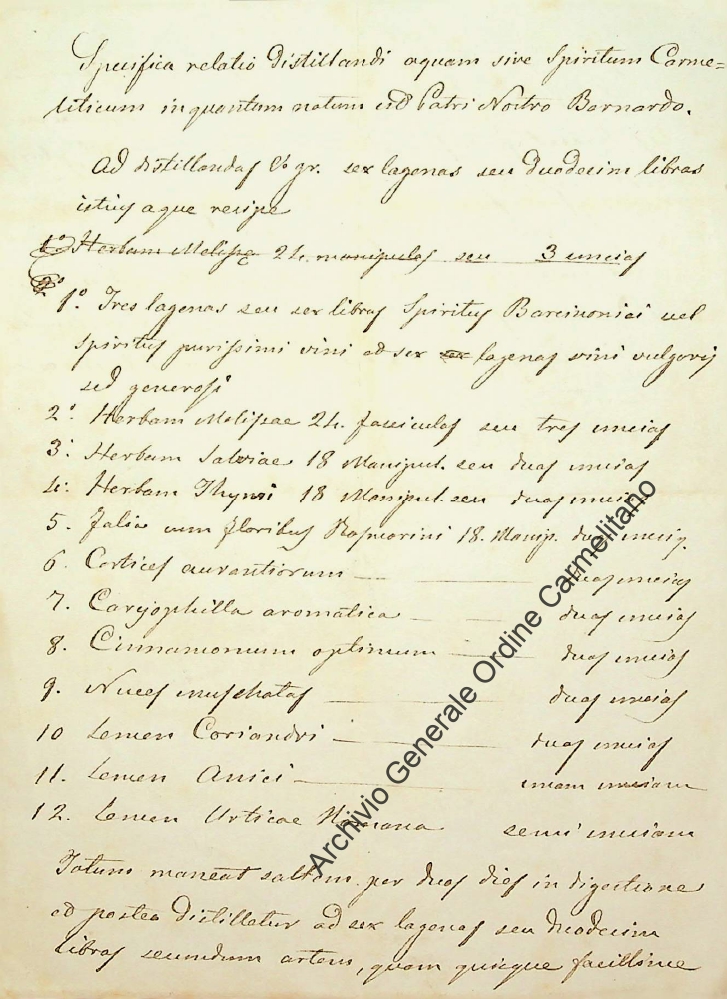 Specifica relatio Distillandi aquam sive Spiritum Carme=
liticum inquantum notum est Patri Nostro Bernardo.
Ad distillandas gr. sex lagenas seu Duodecim libras
istius aque recipe
1º Herbam Melissę 24. manipulos seu 3 uncias
2º
1º. Tres lagenas seu sex libras Spiritus Barcinonici vel
Spiritus purissimi vini ad sex lagenas vini vulgoris
sed generosi
2º. Herbam Melissae 24. fasciculos seu tres uncias
3º. Herbam Salviae 18 Manipul. seu duas uncias
4º. Herbam Thymi 18 Manipul. seu duas uncias
5. Folia cum floribus Rosmorini 18. Manip. duas
6. Cortices aurantiorum duas uncias
7. Caryophilla aromatica duas uncias
8. Cinnamomum optimum duas uncias
9. Nuces muschatas duas uncias
10 Semen Coriandri duas uncias
11. Semen Anici unam unciam
12. Semen Urticae Romana semi unciam
Totum maneat saltem per duos dies in digestione
et postea Distilletur ad sex lagenas seu Duodecim
libras secundum artem, quam quisque facillime
Archivio Generale Ordine Carmelitano